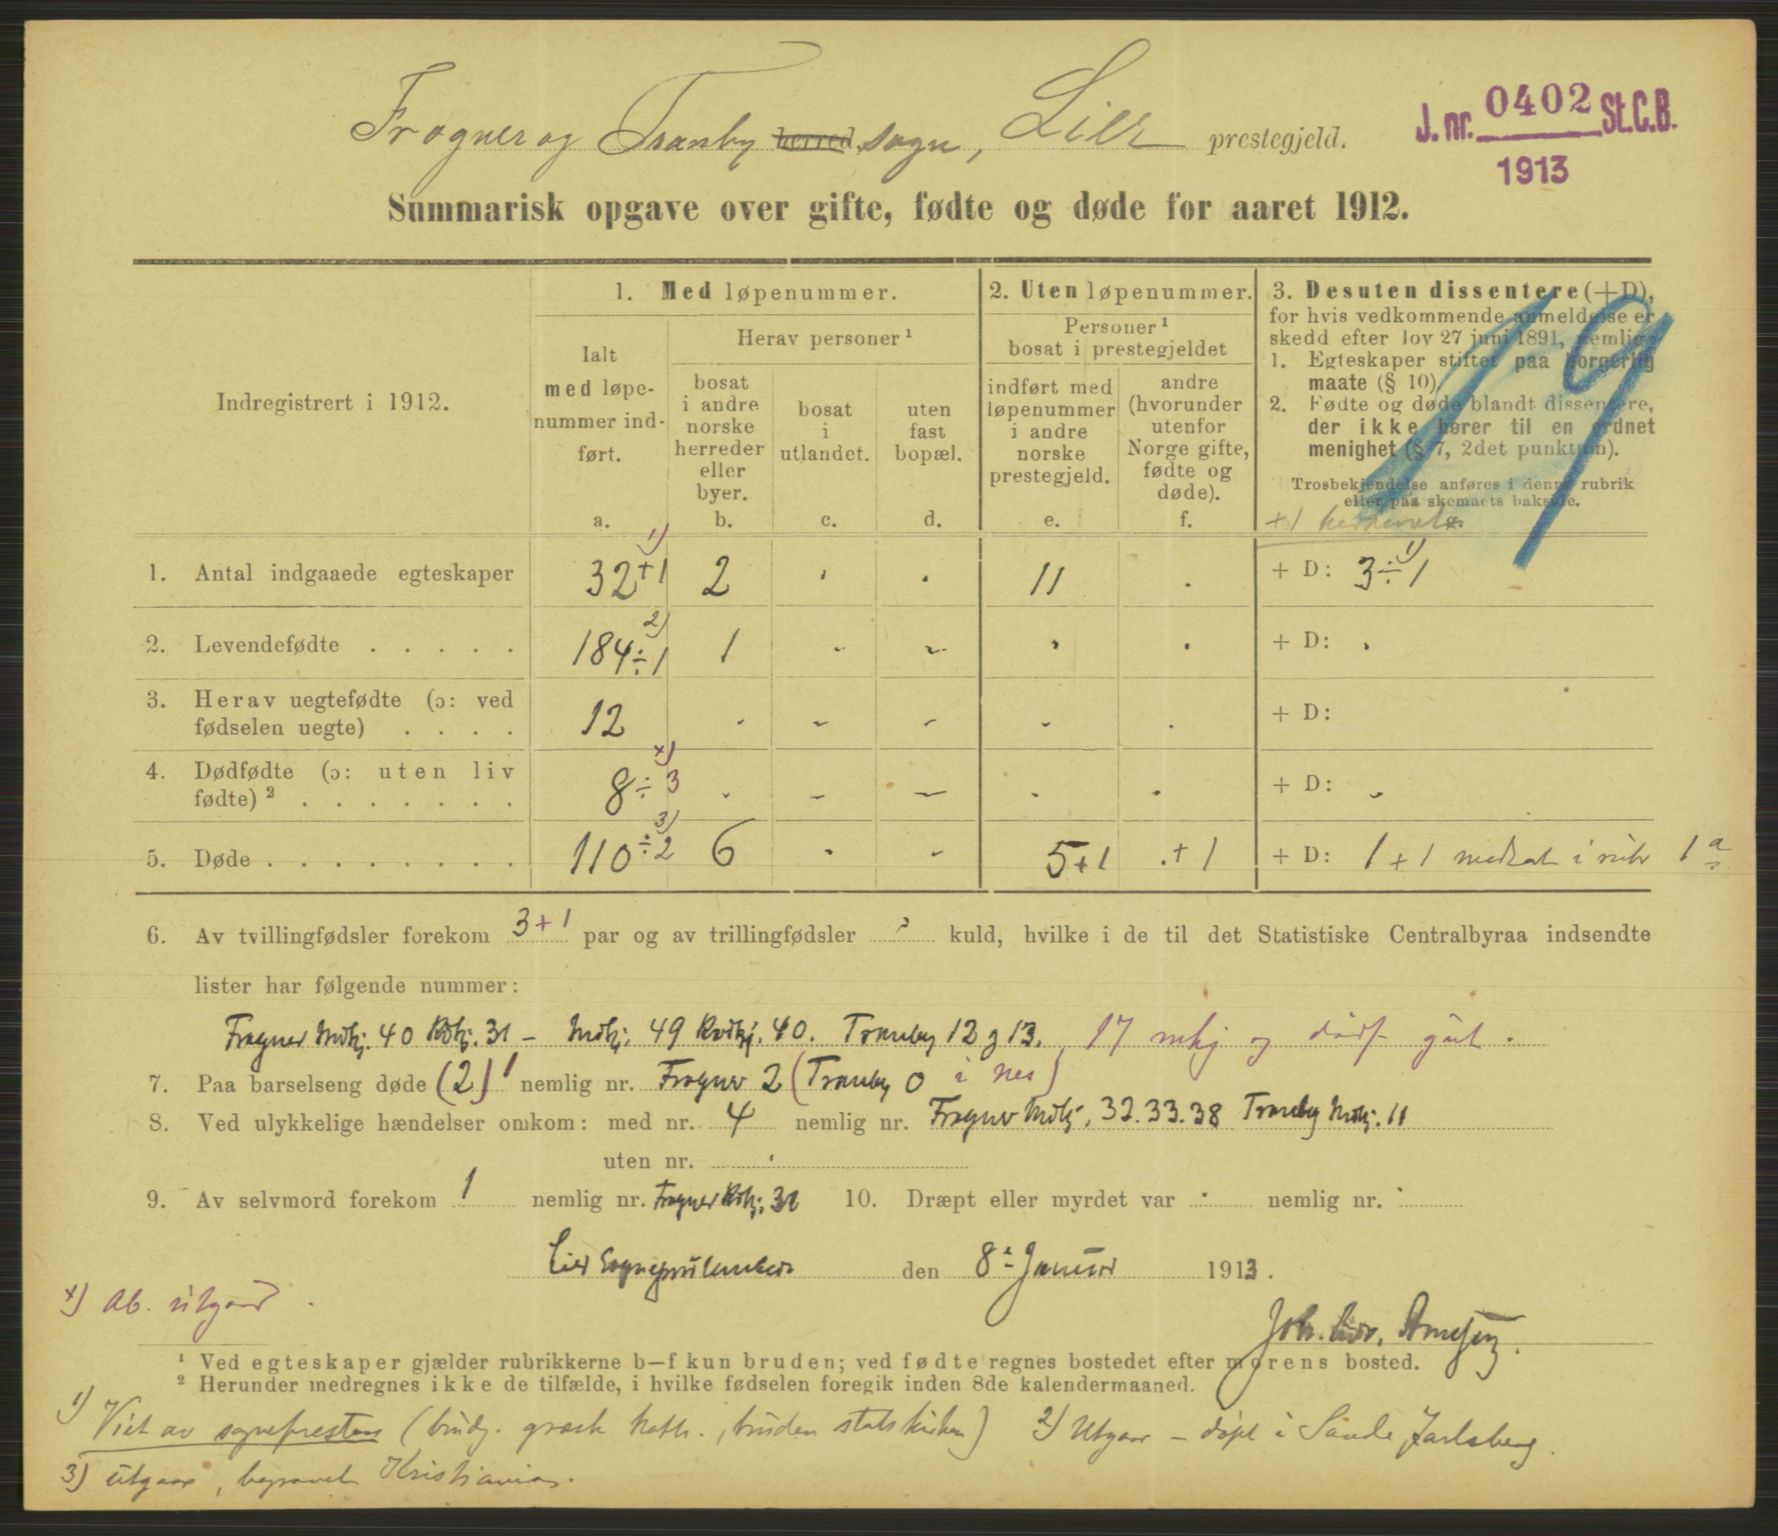 Frogner og Tranby herred sogn, Lier prestegjeld.
J. nr. 0402 St.C.B.
1913
Summarisk opgave over gifte, fødte og døde for aaret 1912.
19
Indregistrert i 1912.
1. Med løpenummer.
Ialt
med løpe-
nummer ind-
ført.
a.
Herav personer ¹
bosat
i andre
norske
herreder
eller
byer.
b.
bosat
i
utlandet.
c.
uten
fast
bopæl.
d.
2. Uten løpenummer.
Personer ¹
bosat i prestegjeldet
indført med
løpenummer
i andre
norske
prestegjeld.
e.
andre
(hvorunder
utenfor
Norge gifte,
fødte og
døde).
f.
3. Desuten dissentere (+D),
for hvis vedkommende anmeldelse er
skedd efter lov 27 juni 1891, nemlig:
1. Egteskaper stiftet paa borgerlig
maate (§ 10).
2. Fødte og døde blandt dissentere,
der ikke hører til en ordnet
menighet (§ 7, 2det punktum).
Trosbekjendelse anføres i denne rubrik
eller paa skemaets bakside.
+1
1. Antal indgaaede egteskaper 32 +1 ¹) 2 . . 11 . + D: 3 ÷ 1 ¹)
2. Levendefødte . . . . . 184 ÷ 1 ²) 1 - - . . + D: .
3. Herav uegtefødte (ɔ: ved
fødselen uegte) . . . . 12 . - - - . + D:
4. Dødfødte (ɔ: uten liv
fødte) ² . . . . . . . 8 ÷ 3 ×) . - - . . + D: -
5. Døde . . . . . . . . 110 ÷ 2 ³) 6 . - 5+1 .+1 + D: 1 + 1 medtat i rubr 1 a
6. Av tvillingfødsler forekom 3 + 1 par og av trillingfødsler kuld, hvilke i de til det Statistiske Centralbyraa indsendte
lister har følgende nummer:
Frogner Mdkj. 40 Kvkj. 31 - Mdkj. 49 Kvdkj. 40. Tranby 12 g 13., 17 mkj og dødf gut.
7. Paa barselseng døde (2) 1 nemlig nr. Frogner 2 (Tranby 0 i nes)
8. Ved ulykkelige hændelser omkom: med nr. 4 nemlig nr. Frogner Mdkj. 32. 33. 38 Tranby Mdkj. 11
uten nr. .
9. Av selvmord forekom 1 nemlig nr. Frogner Kvkj. 31 10. Dræpt eller myrdet var . nemlig nr. .
Lier den 8de Januar 1913.
×) Ab. utgaar.
¹ Ved egteskaper gjælder rubrikkerne b—f kun bruden; ved fødte regnes bostedet efter morens bosted.
² Herunder medregnes ikke de tilfælde, i hvilke fødselen foregik inden 8de kalendermaaned.
1) Viet av sognepresten (brudg. græsk kath., bruden statskirken) 2) Utgaar - døpt i Sande, Jarlsberg.
3) utgaar, begravet Kristiania.